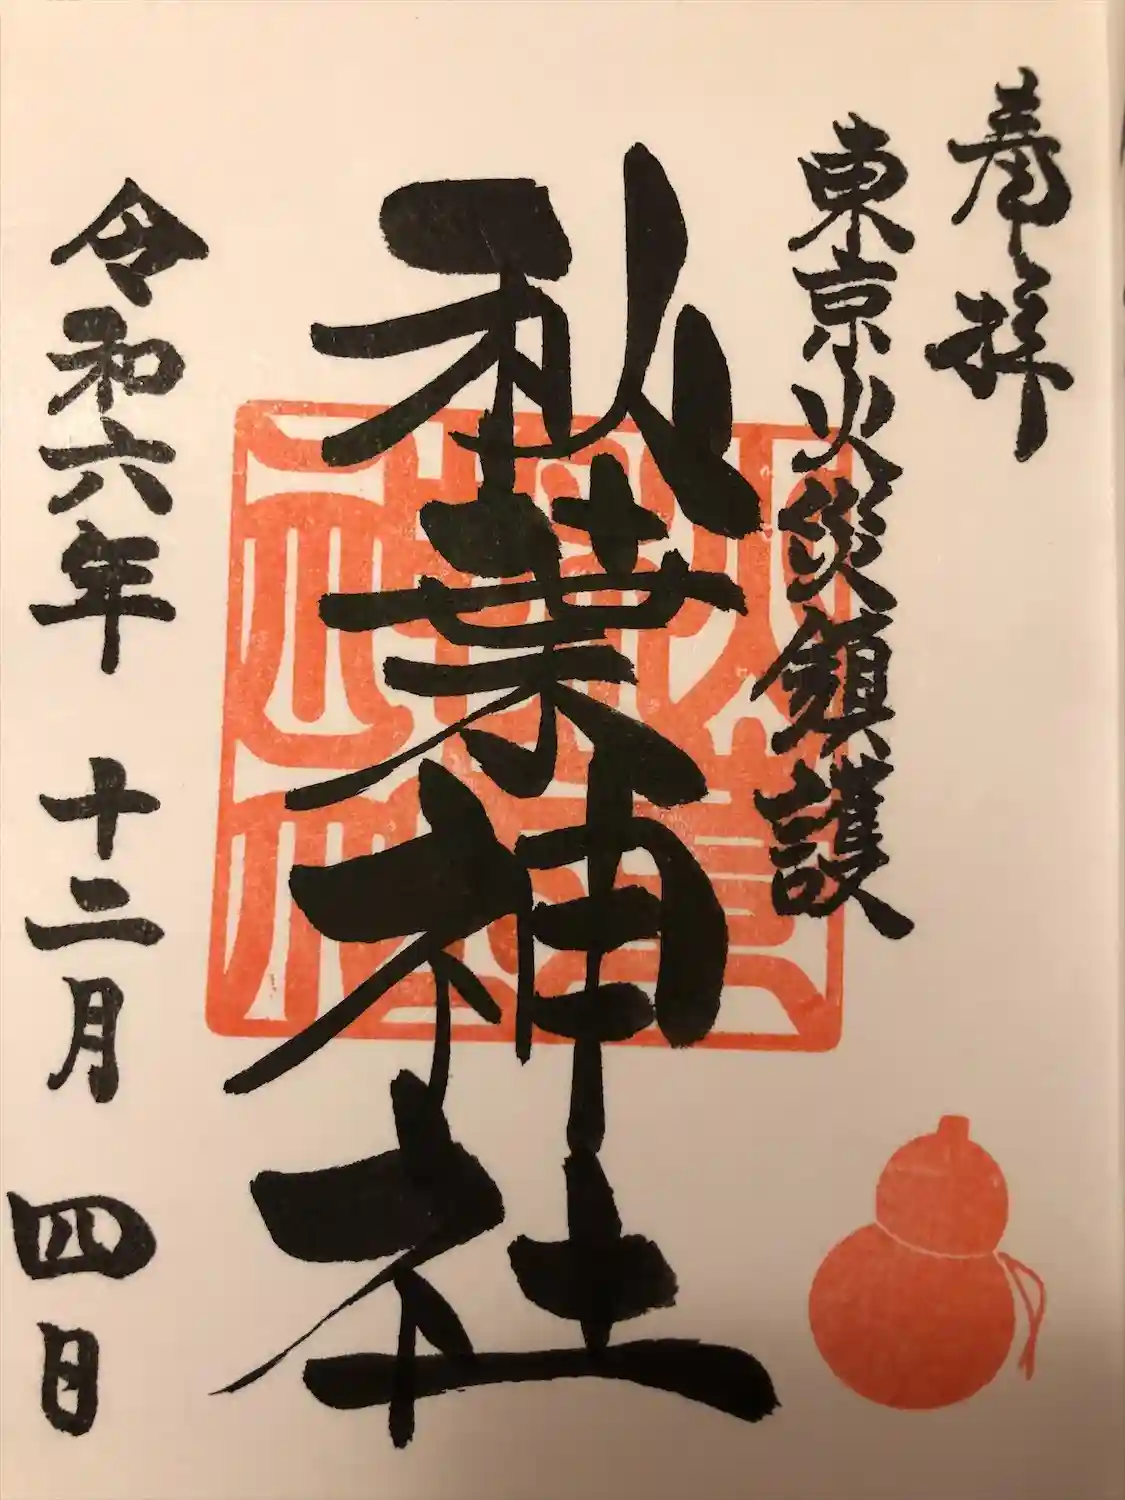 奉拝
東京火災鎮護
秋葉神社
令和六年 十二月 四日